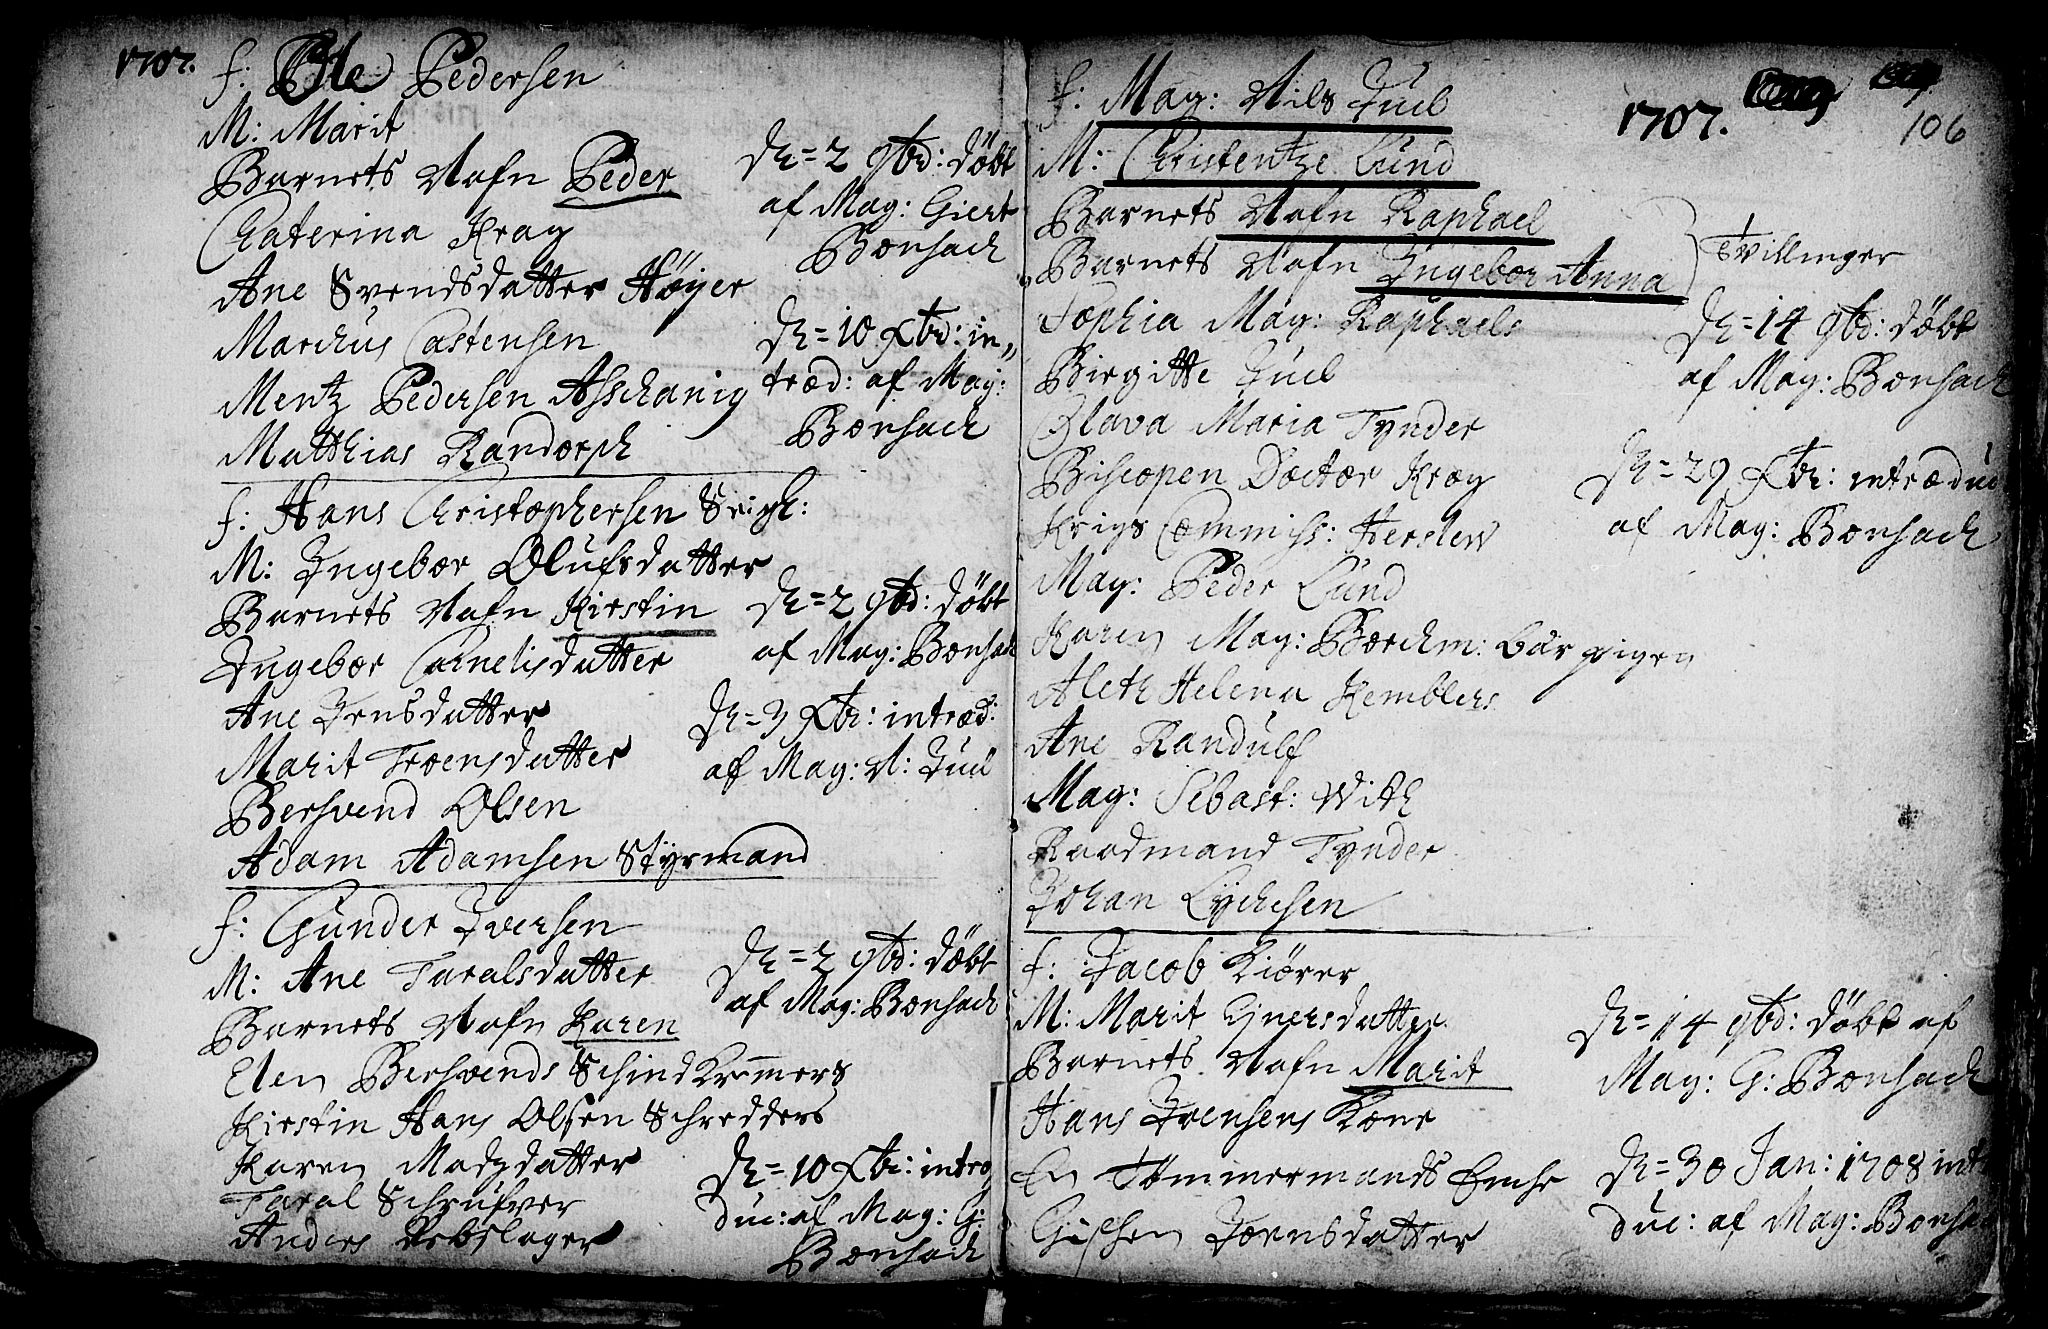 1707.
f: Ole Pedersen
M: Marit
Barnets Nafn Peder
Chaterina Krag
Ane Svendsdatter Høyer
Marchus Castensen
Mentz Pedersen Asschanig
Matthias Randorph
D: = 2 9bd: døbt
af Mag: Giert
Bonsach
D: = 10 Xbr: in„
trod: af Mag:
Bonsach
f: Hans Christophersen
M: Ingebor Olufsdatter
Barnets Nafn Kirstin
Ingebor Cornelisdatter
Ane Jensdatter
Marit Troensdatter
Bersvend Olsen
Adam Adamsen Styrmand
D: = 2 9bd: døbt
af Mag: Bonsach
D: = 3 Xbr: introd:
af Mag: N: Juel
f: Gunder Iversen
M: Ane Taralsdatter
Barnets Nafn Karen
Elen Bersvends
Kirstin Hans Olsen Schredders
Karen Madzdatter
Taral Schrufver
Anders Rebslager
D: = 2 9bd: døbt
af Mag: Bonsach
D: = 10 Xbr: intro
duc: af Mag: G:
Bonsach
1707.
106
f: Mag: Nils Juel
M: Christentze Lund
Barnets Nafn Raphael
Barnets Nafn Ingebor Anna
Tvillinger
Sophia Mag: Raphaels
Birgitte Juel
Olava Maria Tynder
Biscopen Doctor Krog
Krigs Commiss: Herslew
Mag: Peder Lund
Karen Mag: Borchm:
Aleth Helena Kemblers
Ane Randulf
Mag: Sebast: With
Raadmand Tynder
Johan Lychesen
D: = 14 9bd: døbt
af Mag: Bonsach
D: = 29 Xbr: introduc
af Mag: Bonsach
f: Jacob Kiører
M: Marit Ejnersdatter
Barnets Nafn Marit
Hans Joensens Kone
En Tømmermands Enche
Gischen Joensdatter
D: = 14 9bd: døbt af
Mag: G: Bonsach
D: = 30 Jan: 1708 int
duc: af Mag: Bonsac